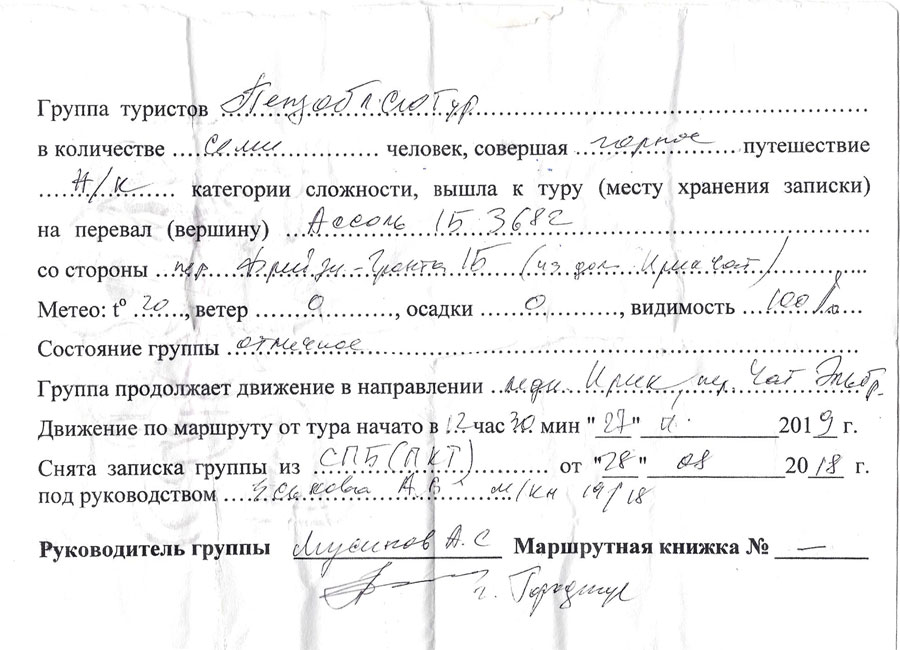 Группа туристов Пензоблспотур
в количестве семи человек, совершая горное путешествие
Н/К категории сложности, вышла к туру (месту хранения записки)
на перевал (вершину) Ассоль 1Б 3682
со стороны пер. Фрейди-Гранта 1Б (из дол. Ирикчат)
Метео: t° 20, ветер 0, осадки 0, видимость 100%
Состояние группы отличное
Группа продолжает движение в направлении ледн. Ирик, пер. Чат Эльбр.
Движение по маршруту от тура начато в 12 час 30 мин "27" 2019 г.
Снята записка группы из СПБ (ПКТ) от "28" 08 2018 г.
под руководством Еськова А.В м/кн 19/18
Руководитель группы А.С Маршрутная книжка № —
г.